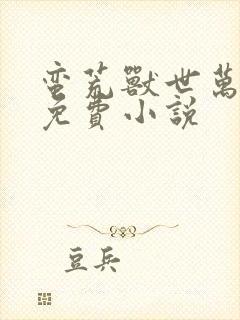 蛮荒獸世萬
免費小説
豆兵